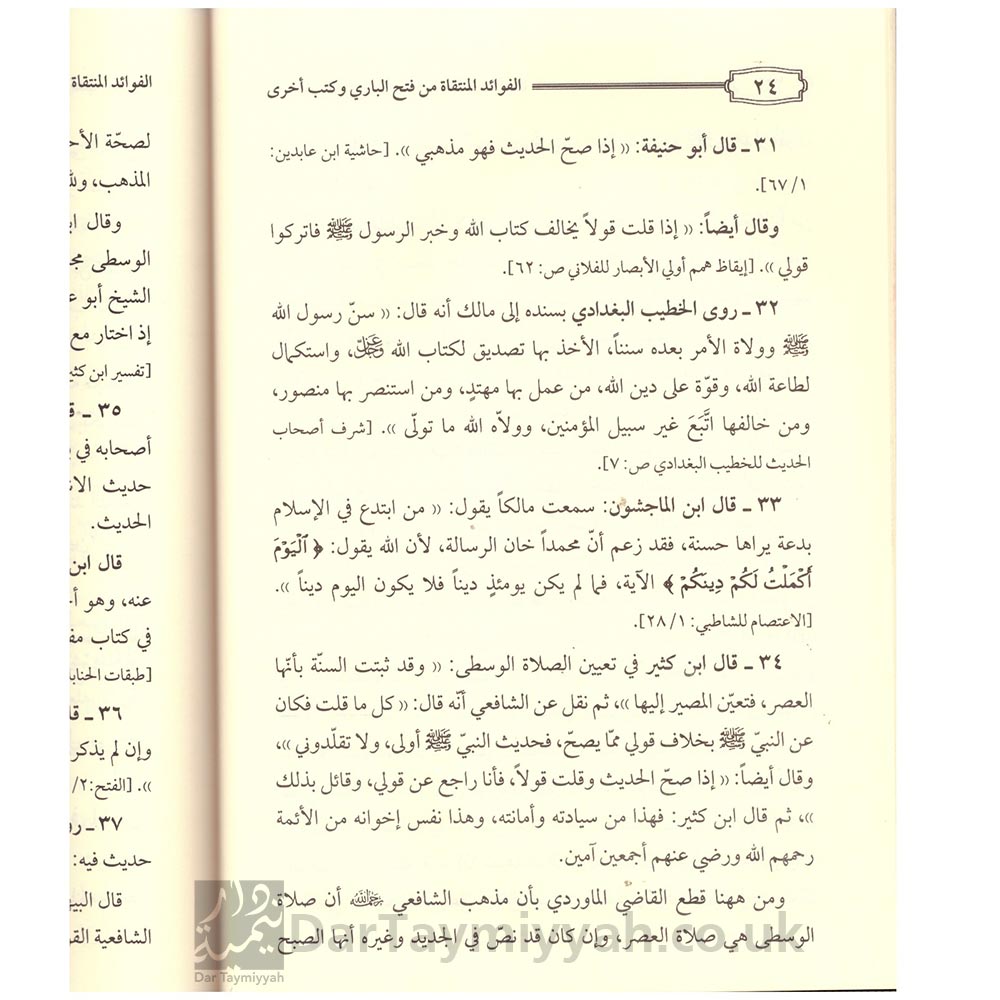 ٢٤
الفوائد المنتقاة من فتح الباري وكتب أخرى
٣١ ـ قال أبو حنيفة: « إذا صحّ الحديث فهو مذهبي ». [حاشية ابن عابدين:
٦٧/١].
وقال أيضاً: « إذا قلت قولاً يخالف كتاب الله وخبر الرسول ﷺ فاتركوا
قولي ». [إيقاظ همم أولي الأبصار للفلاني ص: ٦٢].
٣٢ ـ روى الخطيب البغدادي بسنده إلى مالك أنه قال: « سنّ رسول الله
ﷺ وولاة الأمر بعده سنناً، الأخذ بها تصديق لكتاب الله عزوجل، واستكمال
لطاعة الله، وقوّة على دين الله، من عمل بها مهتدٍ، ومن استنصر بها منصور،
ومن خالفها اتَّبَعَ غير سبيل المؤمنين، وولاّه الله ما تولّى ». [شرف أصحاب
الحديث للخطيب البغدادي ص: ٧].
٣٣ ـ قال ابن الماجشون: سمعت مالكاً يقول: « من ابتدع في الإسلام
بدعة يراها حسنة، فقد زعم أنّ محمداً خان الرسالة، لأن الله يقول: ﴿ ٱلْيَوْمَ
أَكْمَلْتُ لَكُمْ دِينَكُمْ ﴾ الآية، فما لم يكن يومئذٍ ديناً فلا يكون اليوم ديناً ».
[الاعتصام للشاطبي: ٢٨/١].
٣٤ ـ قال ابن كثير في تعيين الصلاة الوسطى: « وقد ثبتت السنّة بأنّها
العصر، فتعيّن المصير إليها »، ثم نقل عن الشافعي أنّه قال: « كل ما قلت فكان
عن النبيّ ﷺ بخلاف قولي ممّا يصحّ، فحديث النبيّ ﷺ أولى، ولا تقلّدوني »،
وقال أيضاً: « إذا صحّ الحديث وقلت قولاً، فأنا راجع عن قولي، وقائل بذلك
»، ثم قال ابن كثير: فهذا من سيادته وأمانته، وهذا نفس إخوانه من الأئمة
رحمهم الله ورضي عنهم أجمعين آمين.
ومن ههنا قطع القاضي الماوردي بأن مذهب الشافعي رحمه الله أن صلاة
الوسطى هي صلاة العصر، وإن كان قد نصّ في الجديد وغيره أنها الصبح
الفوائد المنتقاة
لصحّة الأح
المذهب، ولله
وقال اب
الوسطى مج
الشيخ أبو ع
إذ اختار مع
[تفسير ابن كثير
٣٥ ـ ق
أصحابه في
حديث الا
الحديث.
قال ابن
عنه، وهو أ
في كتاب مف
[طبقات الحنابلة
٣٦ ـ قا
وإن لم يذكر
». [الفتح: ٢/
٣٧ ـ رو
حديث فيه:
قال البيه
الشافعية القو
دار تيمية
Dar Taymiyyah
DarTaymiyyah.co.uk